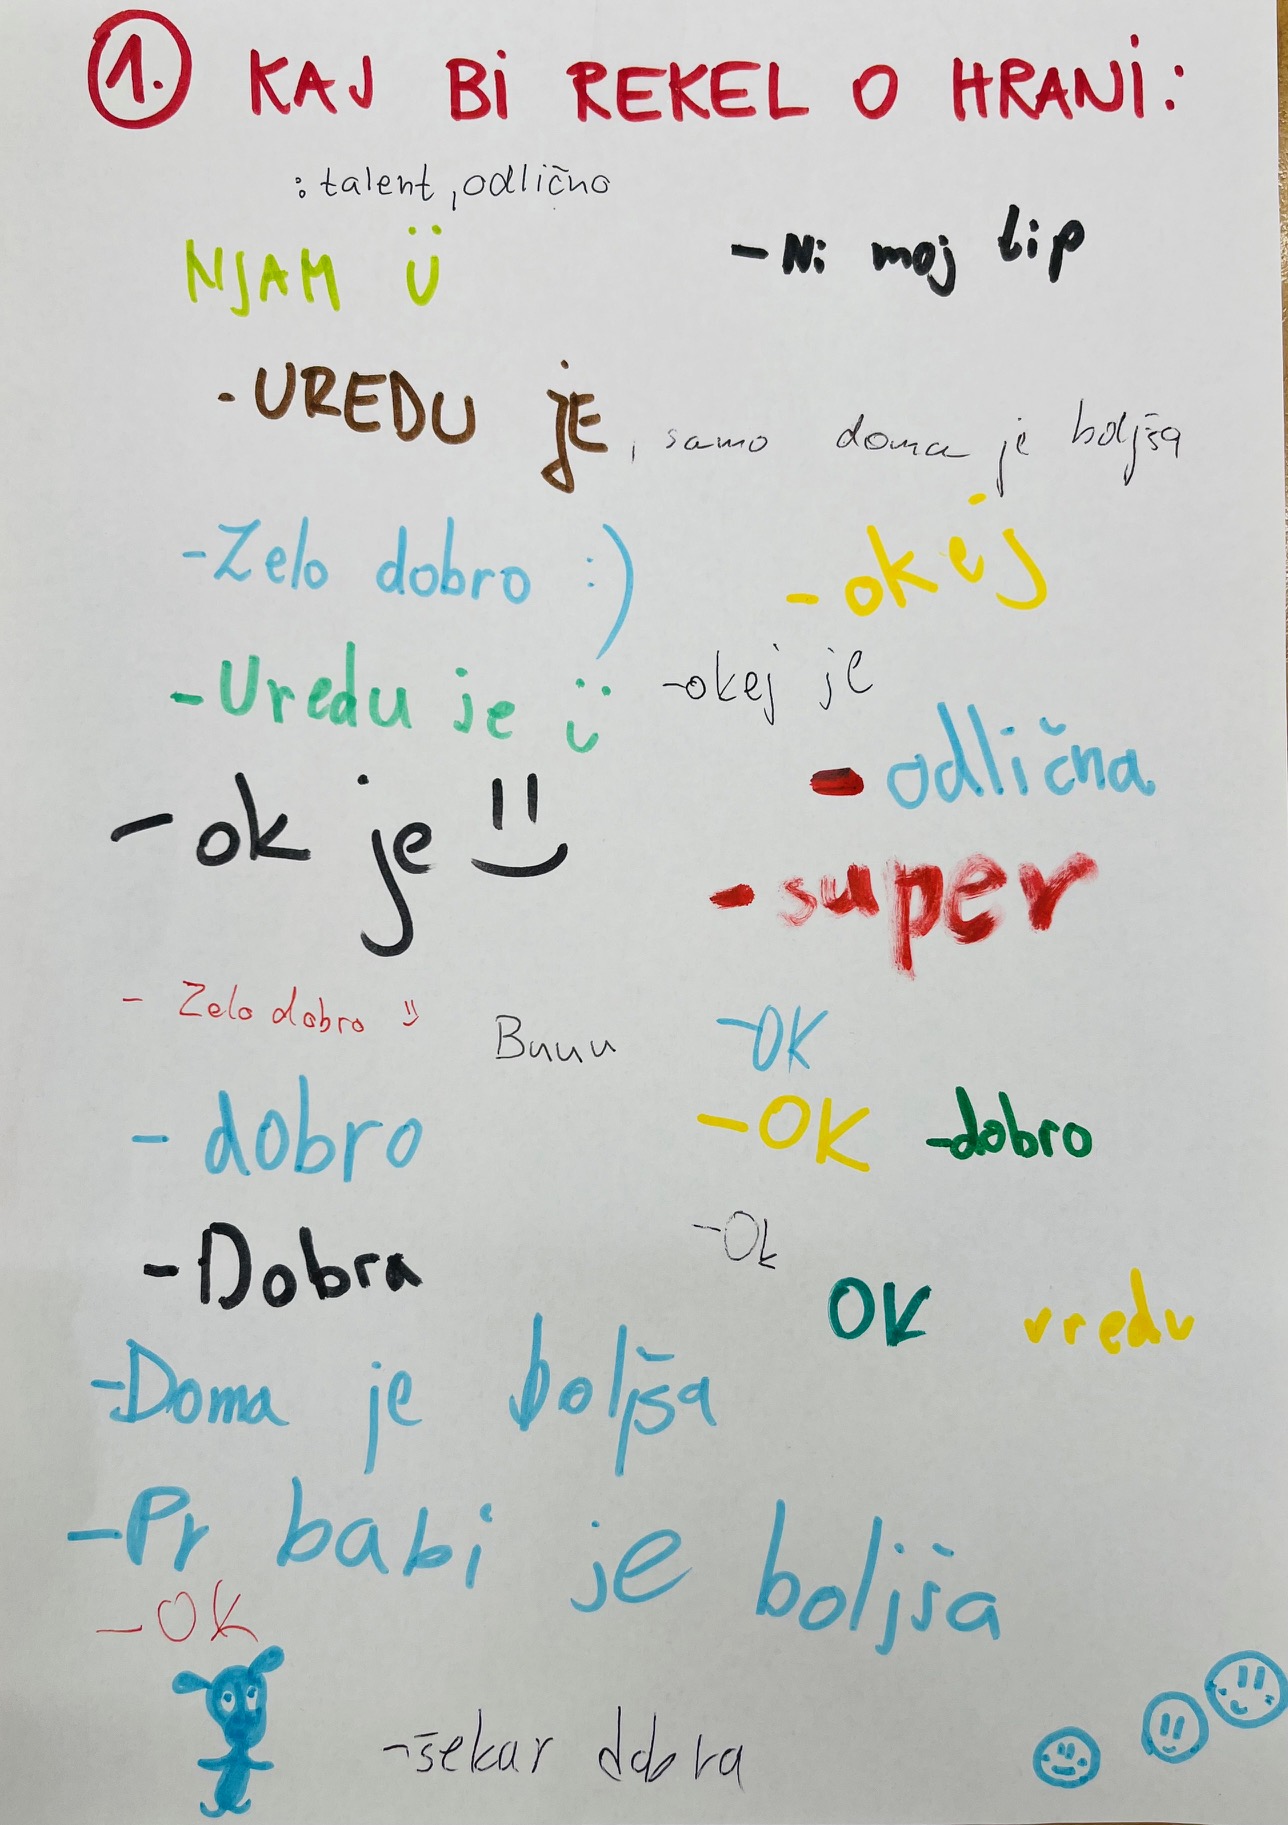 1. KAJ BI REKEL O HRANI:
: talent, odlično
NJAM Ü
- Ni moj tip
- UREDU JE, samo doma je boljša
- Zelo dobro :)
- okej
- Uredu je
- okej je
- odlična
- ok je
- super
- Zelo dobro
Buuu
- OK
- dobro
- OK
- dobro
- Ok
- Dobra
OK
vredu
- Doma je boljša
- Pr babi je boljša
- OK
- šekar dobra